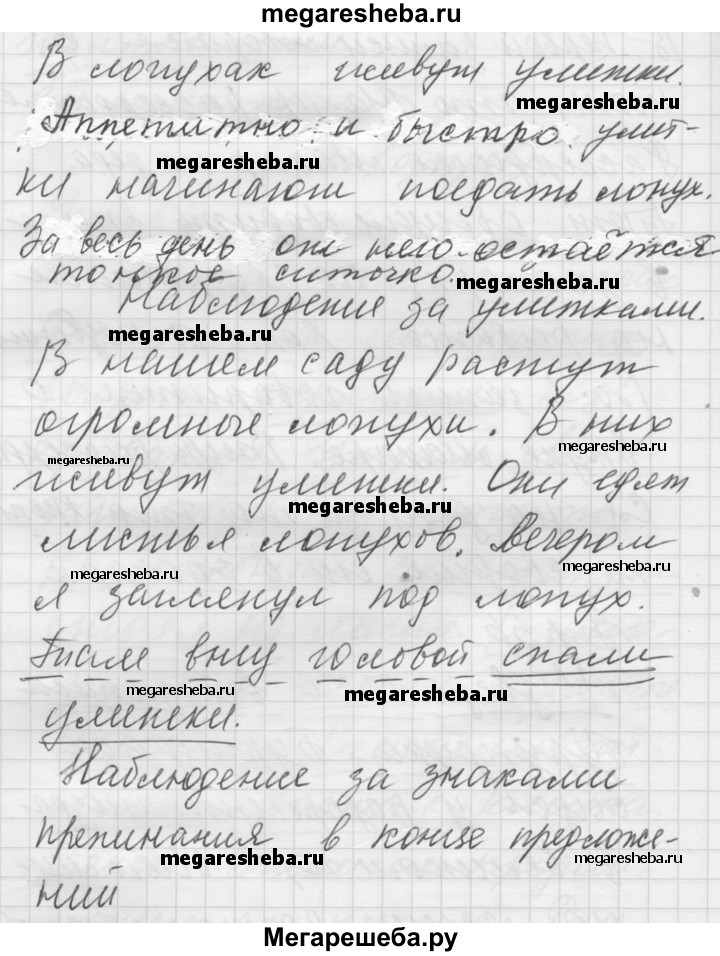 megaresheba.ru
В лопухах живут улитки.
megaresheba.ru
Аппетитно и быстро улит-
megaresheba.ru
ки начинают поедать лопух.
За весь день от него остаётся
тонкое ситочко.
megaresheba.ru
Наблюдение за улитками.
megaresheba.ru
В нашем саду растут
огромные лопухи. В них
megaresheba.ru
megaresheba.ru
живут улитки. Они едят
megaresheba.ru
листья лопухов. Вечером
megaresheba.ru
megaresheba.ru
я заглянул под лопух.
Там вниз головой спали
megaresheba.ru
megaresheba.ru
улитки.
Наблюдение за знаками
препинания в конце предложе-
megaresheba.ru
megaresheba.ru
ний
Мегарешеба.ру